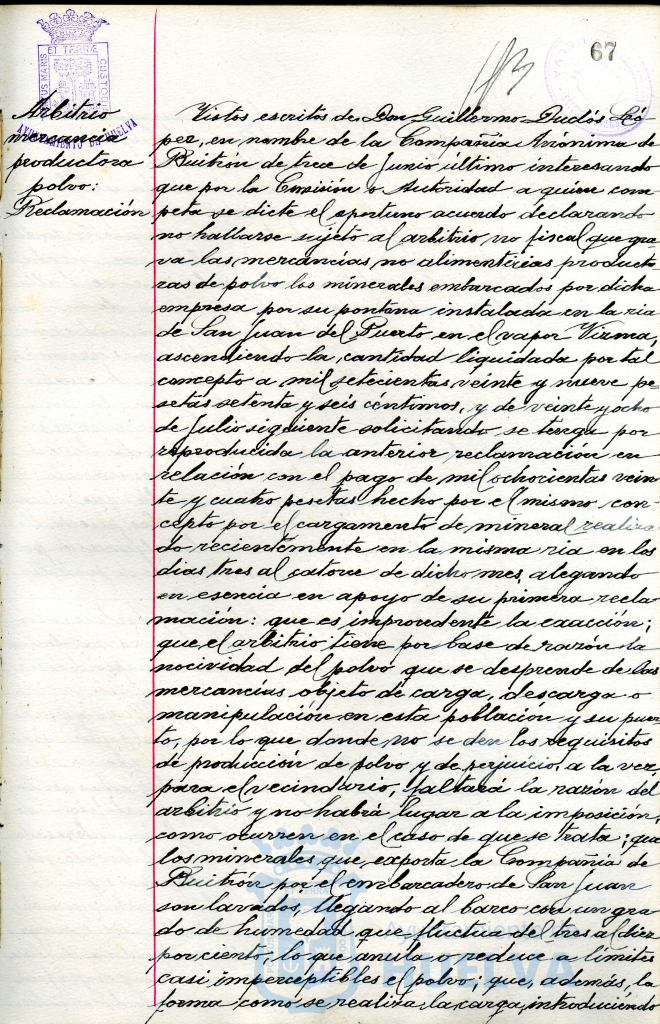 113
67
ET TERRÆ
PORTUS MARIS
CUSTODIA
AYUNTAMIENTO DE HUELVA
Arbitrio
mercancía
productora
polvo:
Reclamación
Vistos escritos de Don Guillermo Duclós Ló-
pez, en nombre de la Compañía Anónima de
Buitrón de trece de Junio último interesando
que por la Comisión o Autoridad a quien com
peta se dicte el oportuno acuerdo declarando
no hallarse sujeto al arbitrio no fiscal que gra-
va las mercancías no alimenticias producto
ras de polvo los minerales embarcados por dicha
empresa por su pontana instalada en la ria
de San Juan del Puerto en el vapor Virma,
ascendiendo la cantidad liquidada por tal
concepto a mil setecientas veinte y nueve pe
setas setenta y seis céntimos, y de veinte y ocho
de Julio siguiente solicitando se tenga por
reproducida la anterior reclamación en
relación con el pago de mil ochocientas vein
te y cuatro pesetas hecho por el mismo con-
cepto por el cargamento de mineral realiza
do recientemente en la misma ria en los
dias tres al catorce de dicho mes, alegando
en esencia en apoyo de su primera recla
mación: que es improcedente la exacción;
que, el arbitrio tiene por base de razón la
nocividad del polvo que se desprende de las
mercancías objeto de carga, descarga o
manipulación en esta población y su puer
to, por lo que donde no se den los requisitos
de producción de polvo y de perjuicio, a la vez,
para el vecindario, faltará la razón del
arbitrio y no habrá lugar a la imposición,
como ocurren en el caso de que se trata; que
los minerales que exporta la Compañía de
Buitrón por el embarcadero de San Juan
son lavados, llegando al barco con un gra
do de humedad que fluctua del tres al diez
por ciento, lo que anula o reduce a límites
casi imperceptibles el polvo; que, además, la
forma como se realiza la carga, introduciéndo
Ayuntamiento de
HUELVA